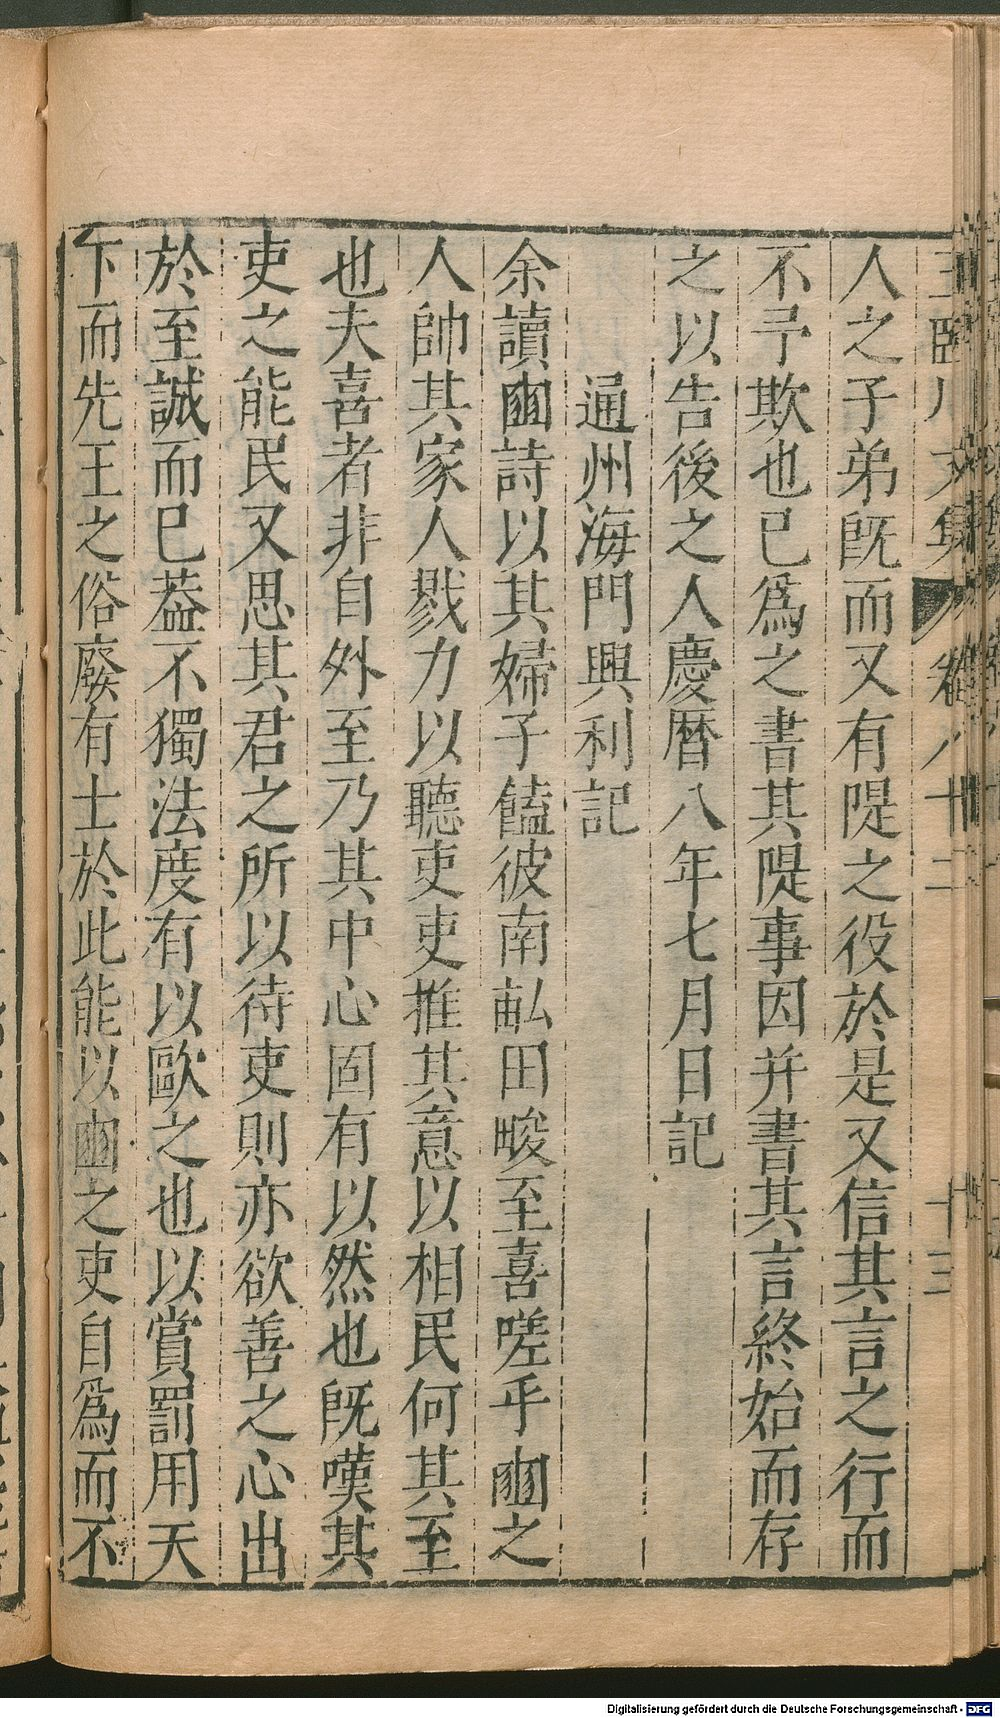 王臨川文集 卷八十二 十三
人之子弟旣而又有隄之役於是又信其言之行而
不予欺也已爲之書其隄事因并書其言終始而存
之以告後之人慶曆八年七月日記
通州海門興利記
余讀豳詩以其婦子饁彼南畝田畯至喜嗟乎豳之
人帥其家人戮力以聽吏吏推其意以相民何其至
也夫喜者非自外至乃其中心固有以然也旣嘆其
吏之能民又思其君之所以待吏則亦欲善之心出
於至誠而已葢不獨法度有以歐之也以賞罰用天
下而先王之俗廢有士於此能以豳之吏自爲而不
Digitalisierung gefördert durch die Deutsche Forschungsgemeinschaft - DFG